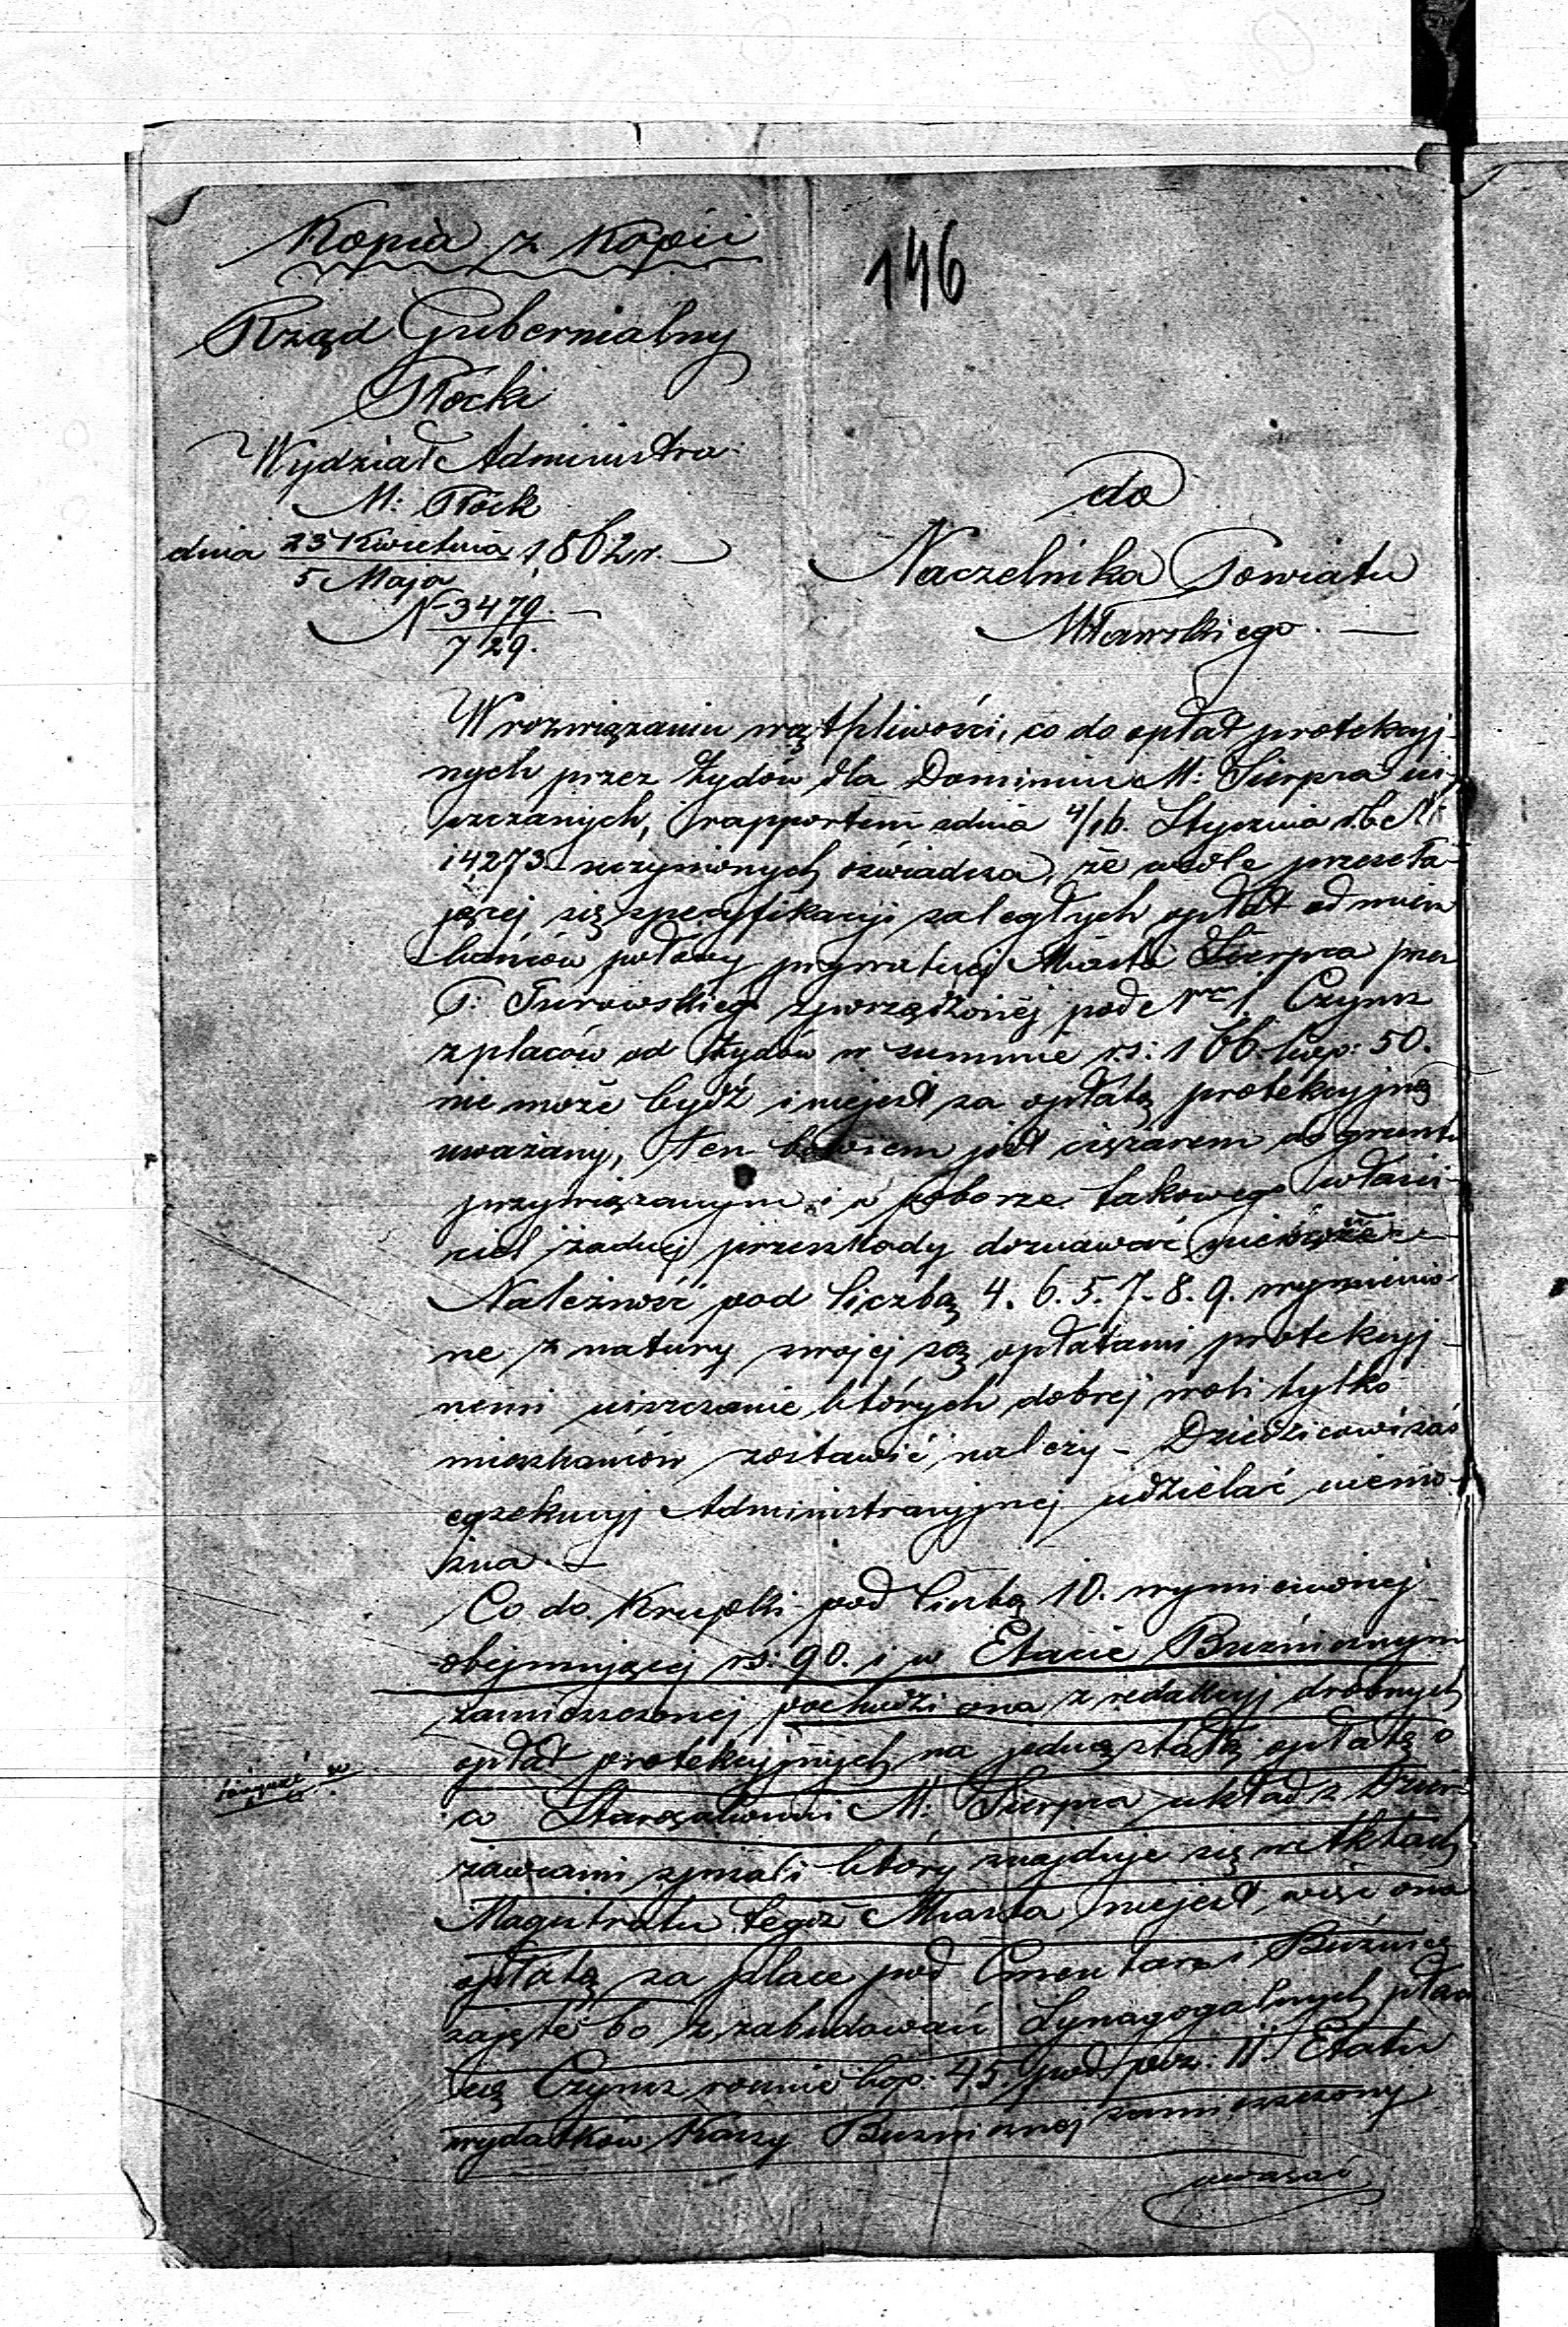 Kopia z Kopii
146
Rząd Gubernialny
Płocki
Wydział Administra:
M: Płock
dnia 23 Kwietnia 1862 r.
5 Maja
N 3479.
729.
do
Naczelnika Powiatu
Mławskiego.
W rozwiązaniu wątpliwości, co do opłat protekcyj-
nych przez Żydów dla Dominium M: Sierpca ui-
szczanych, rapportem z dnia 4/16. Stycznia r.b. N
14273 uczynionych oświadcza, że wedle przeseła-
jącej się specyfikacyi zaległych opłat od miesz
kańców połowy prywatnej Miasta Sierpca przez
P: sporządzonej pode N 1 Czynsz
z placów od Żydów w summie rs: 166 kop: 50.
nie może bydź i niejest za opłatę protekcyjną
uważany, ten bowiem jest ciężarem do gruntu
przywiązanym i w poborze takowego właści-
ciel żadnej przeszkody doznawać
Należność pod liczbą 4. 6. 5. 7. 8. 9. wymienio-
ne z natury swojej są opłatami protekcyj-
nemi uiszczanie których dobrej woli tylko
mieszkańców zostawić należy - Dziedzicowi zaś
egzekucyj Administracyjnej udzielać niemo-
żna.
Co do Krupki pod liczbą 10. wymienionej
obejmującej rs: 90. i w Etacie Bużnicznym
zamieszczonej pochodzi ona z redukcyj drobnych
opłat protekcyjnych na jedną stałą opłatę o
co Starozakonni M: Sierpca układ z Dzier-
żawcami zjmiali który znajduje się w Aktach
Magistratu tegoż Miasta niejest, więc ona
opłatą za place pod Cmentarz i Bużnicę
zajęte bo z zabudowań Synagogalnych płaci
się Czynsz rocznie kop: 45 pod poz: 11. Etatu
wydatków Kassy Bużnicznej zamieszczony
uważać